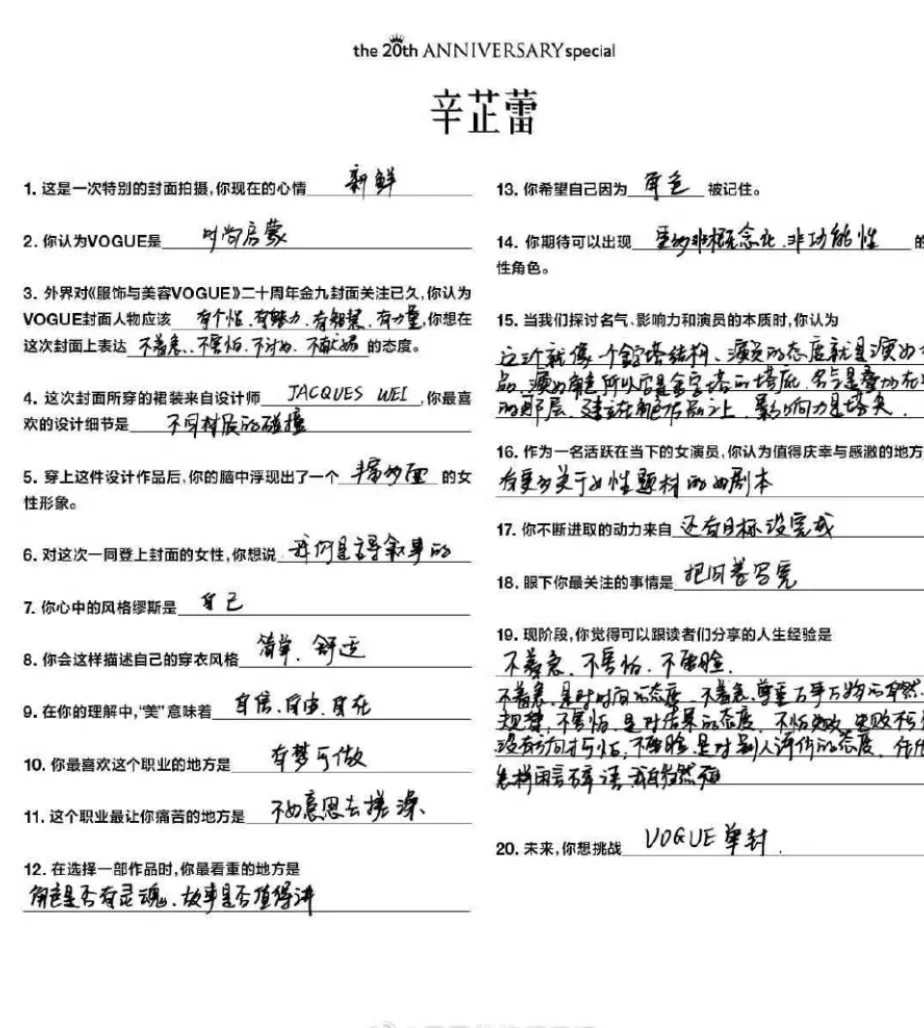 the 20th ANNIVERSARY special
辛芷蕾
1. 这是一次特别的封面拍摄,你现在的心情 新鲜
2. 你认为VOGUE是 时尚启蒙
3. 外界对《服饰与美容VOGUE》二十周年金九封面关注已久,你认为
VOGUE封面人物应该 有个性、有魅力、有智慧、有力量,你想在
这次封面上表达 不着急、不害怕、不讨好、不献媚 的态度。
4. 这次封面所穿的裙装来自设计师 JACQUES WEI ,你最喜
欢的设计细节是 不同材质的碰撞
5. 穿上这件设计作品后,你的脑中浮现出了一个 丰富多面 的女
性形象。
6. 对这次一同登上封面的女性,你想说 我们是主导叙事的
7. 你心中的风格缪斯是 自己
8. 你会这样描述自己的穿衣风格 简单、舒适
9. 在你的理解中,“美”意味着 自信、自由、自在
10. 你最喜欢这个职业的地方是 有梦可做
11. 这个职业最让你痛苦的地方是 不好意思去搓澡、
12. 在选择一部作品时,你最看重的地方是
角色是否有灵魂、故事是否值得讲
13. 你希望自己因为 角色 被记住。
14. 你期待可以出现 更多非概念化、非功能性
性角色。
15. 当我们探讨名气、影响力和演员的本质时,你认为
这三个就像一个金字塔结构、演员的态度就是演好
品、演好角色所以它是金字塔的塔底、名气是叠加在
的那层、建立在作品之上、影响力是塔尖.
16. 作为一名活跃在当下的女演员,你认为值得庆幸与感激的地方
有更多关于女性题材的好剧本
17. 你不断进取的动力来自 还有目标没完成
18. 眼下你最关注的事情是 把问卷写完
19. 现阶段,你觉得可以跟读者们分享的人生经验是
不着急、不害怕、不要脸.
不着急、是对时间的态度、不着急、尊重万事万物的自然
规律、不害怕、是对结果的态度、不怕失败、失败不
没有方向才可怕、不要脸、是对别人评价的态度、任
怎样闲言碎语、我自岿然不
20. 未来,你想挑战 VOGUE单封.